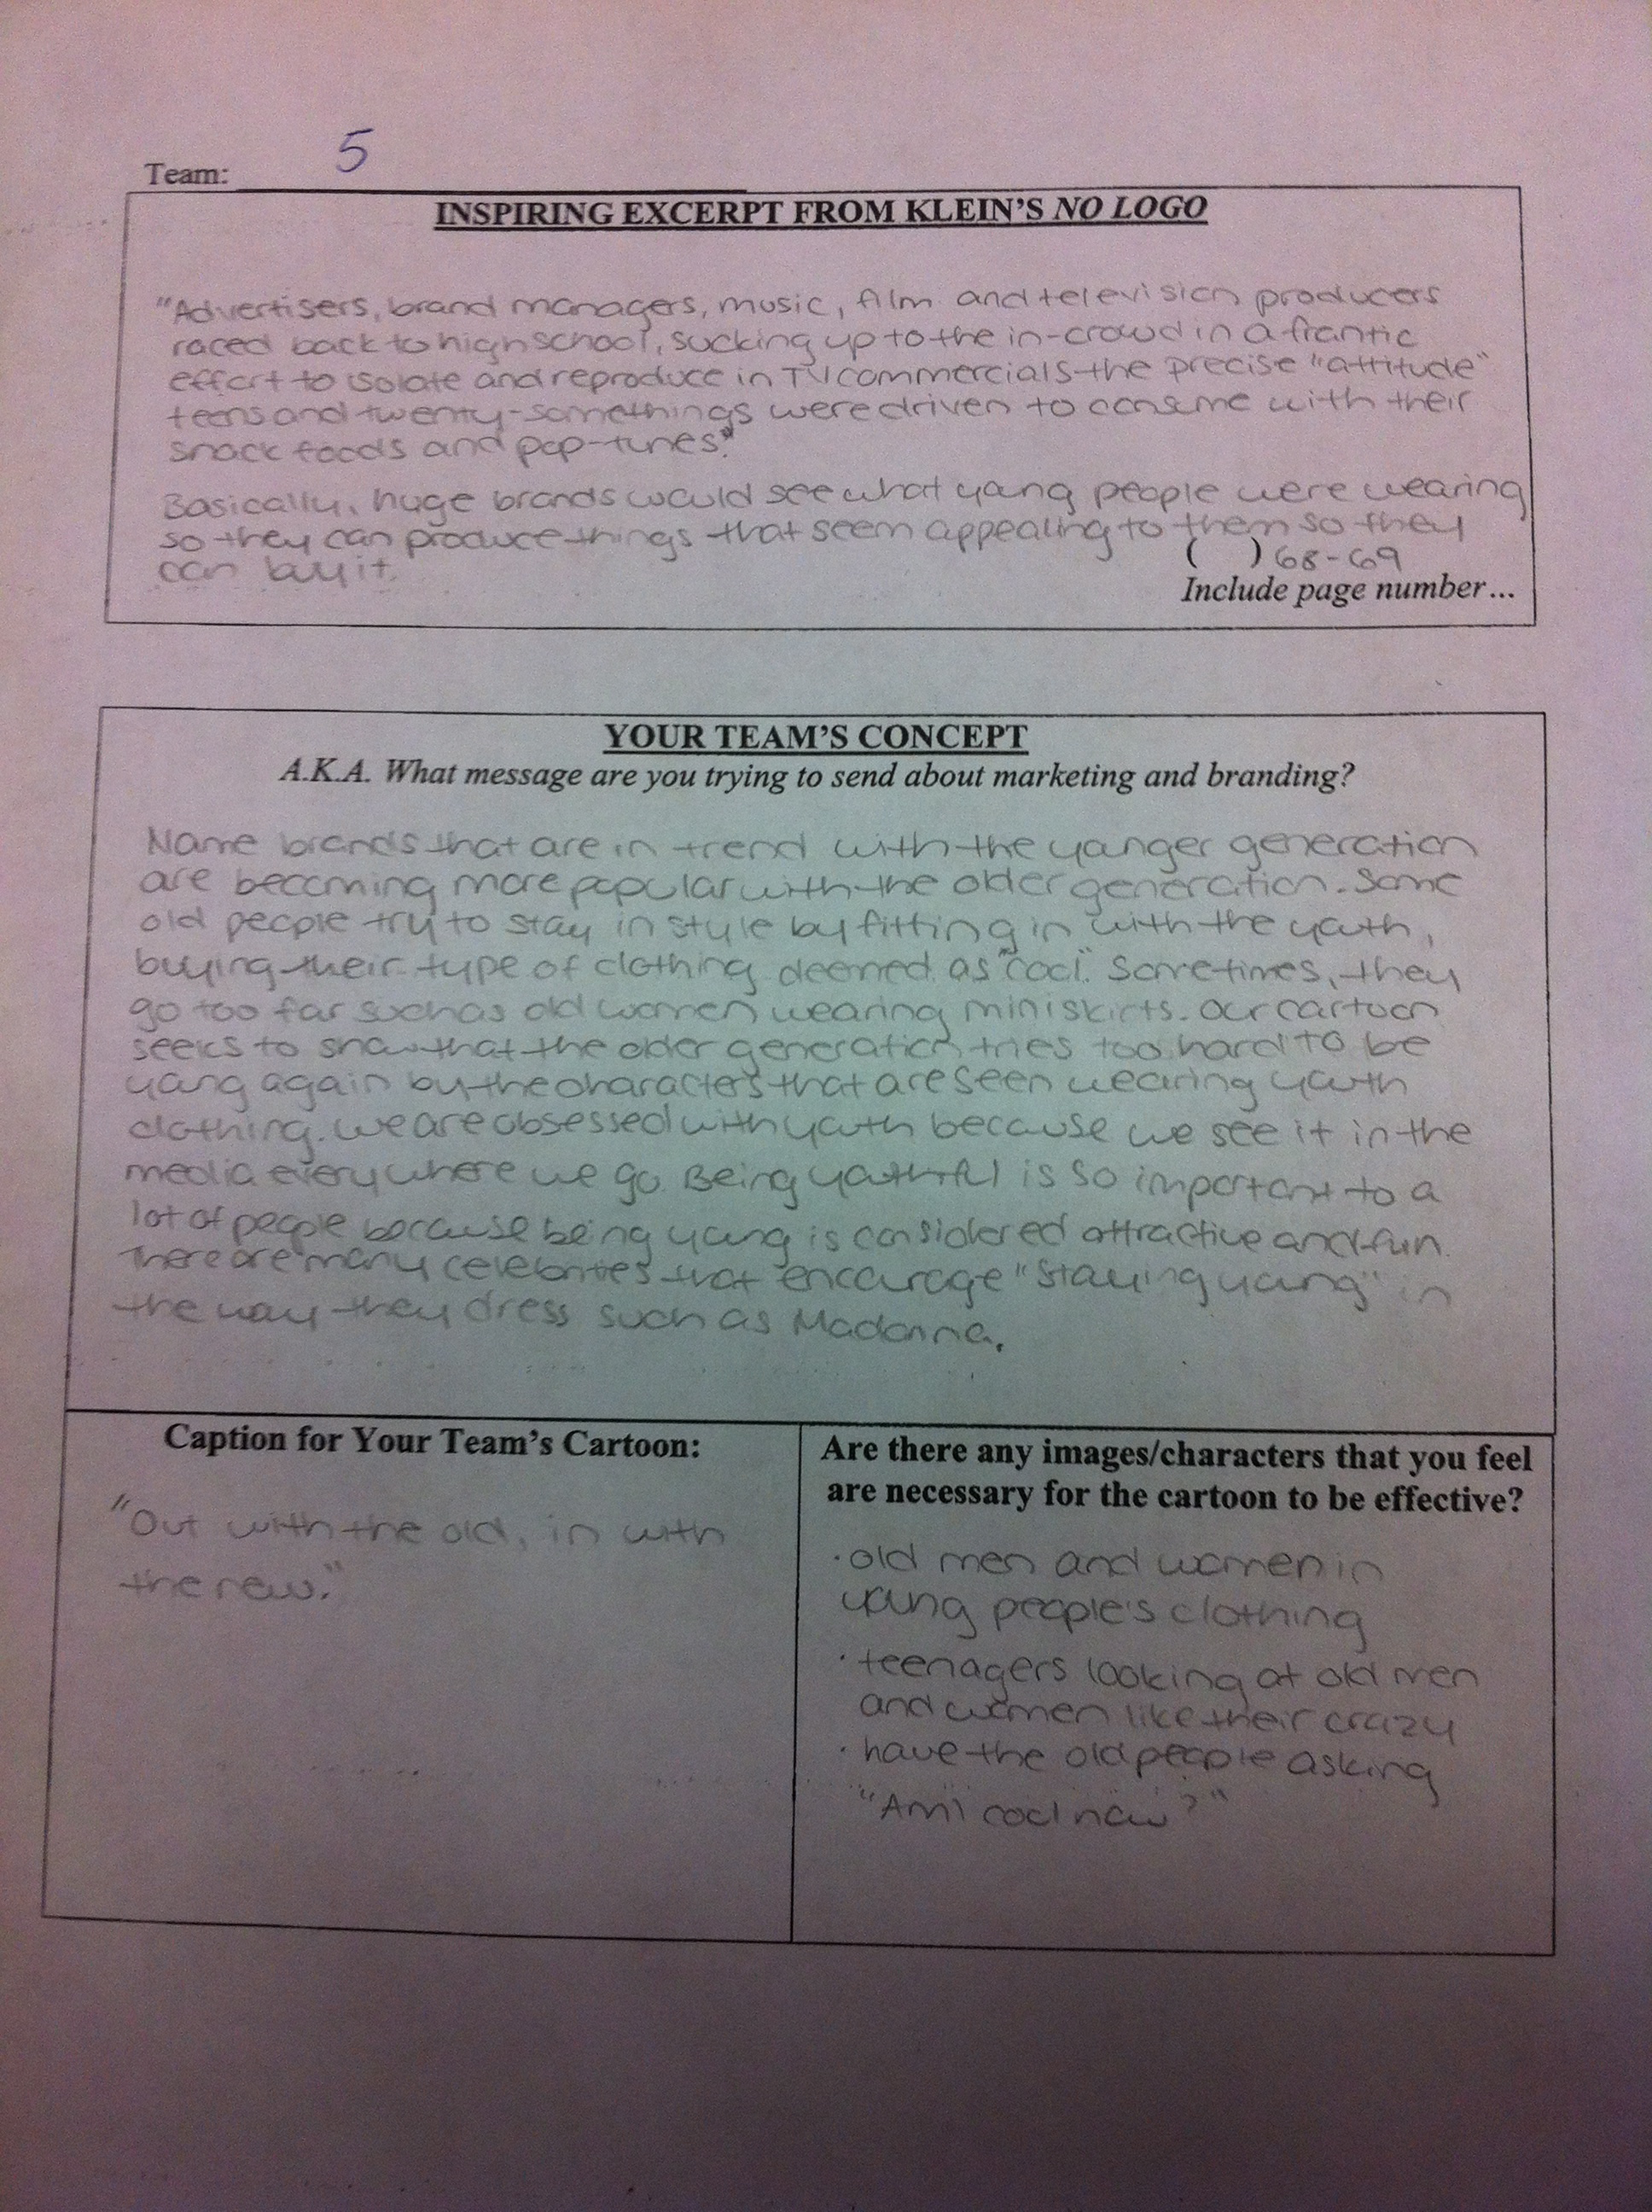 Team: 5
INSPIRING EXCERPT FROM KLEIN'S NO LOGO
"Advertisers, brand managers, music, film and television producers
raced back to high school, sucking up to the in-crowd in a frantic
effort to isolate and reproduce in TV commercials the precise "attitude"
teens and twenty-somethings were driven to consume with their
snack foods and pop-tunes."
Basically, huge brands would see what young people were wearing
so they can produce things that seem appealing to them so they
can buy it.
( ) 68-69
Include page number...
YOUR TEAM'S CONCEPT
A.K.A. What message are you trying to send about marketing and branding?
Name brands that are in trend with the younger generation
are becoming more popular with the older generation. Some
old people try to stay in style by fitting in with the youth,
buying their type of clothing deemed as "cool." Sometimes, they
go too far such as old women wearing miniskirts. Our cartoon
seeks to show that the older generation tries too hard to be
young again by the characters that are seen wearing youth
clothing. We are obsessed with youth because we see it in the
media everywhere we go. Being youthful is so important to a
lot of people because being young is considered attractive and fun.
There are many celebrities that encourage "staying young" in
the way they dress such as Madonna.
Caption for Your Team's Cartoon:
"Out with the old, in with
the new."
Are there any images/characters that you feel
are necessary for the cartoon to be effective?
· old men and women in
young people's clothing
· teenagers looking at old men
and women like their crazy
· have the old people asking
"Am I cool now?"